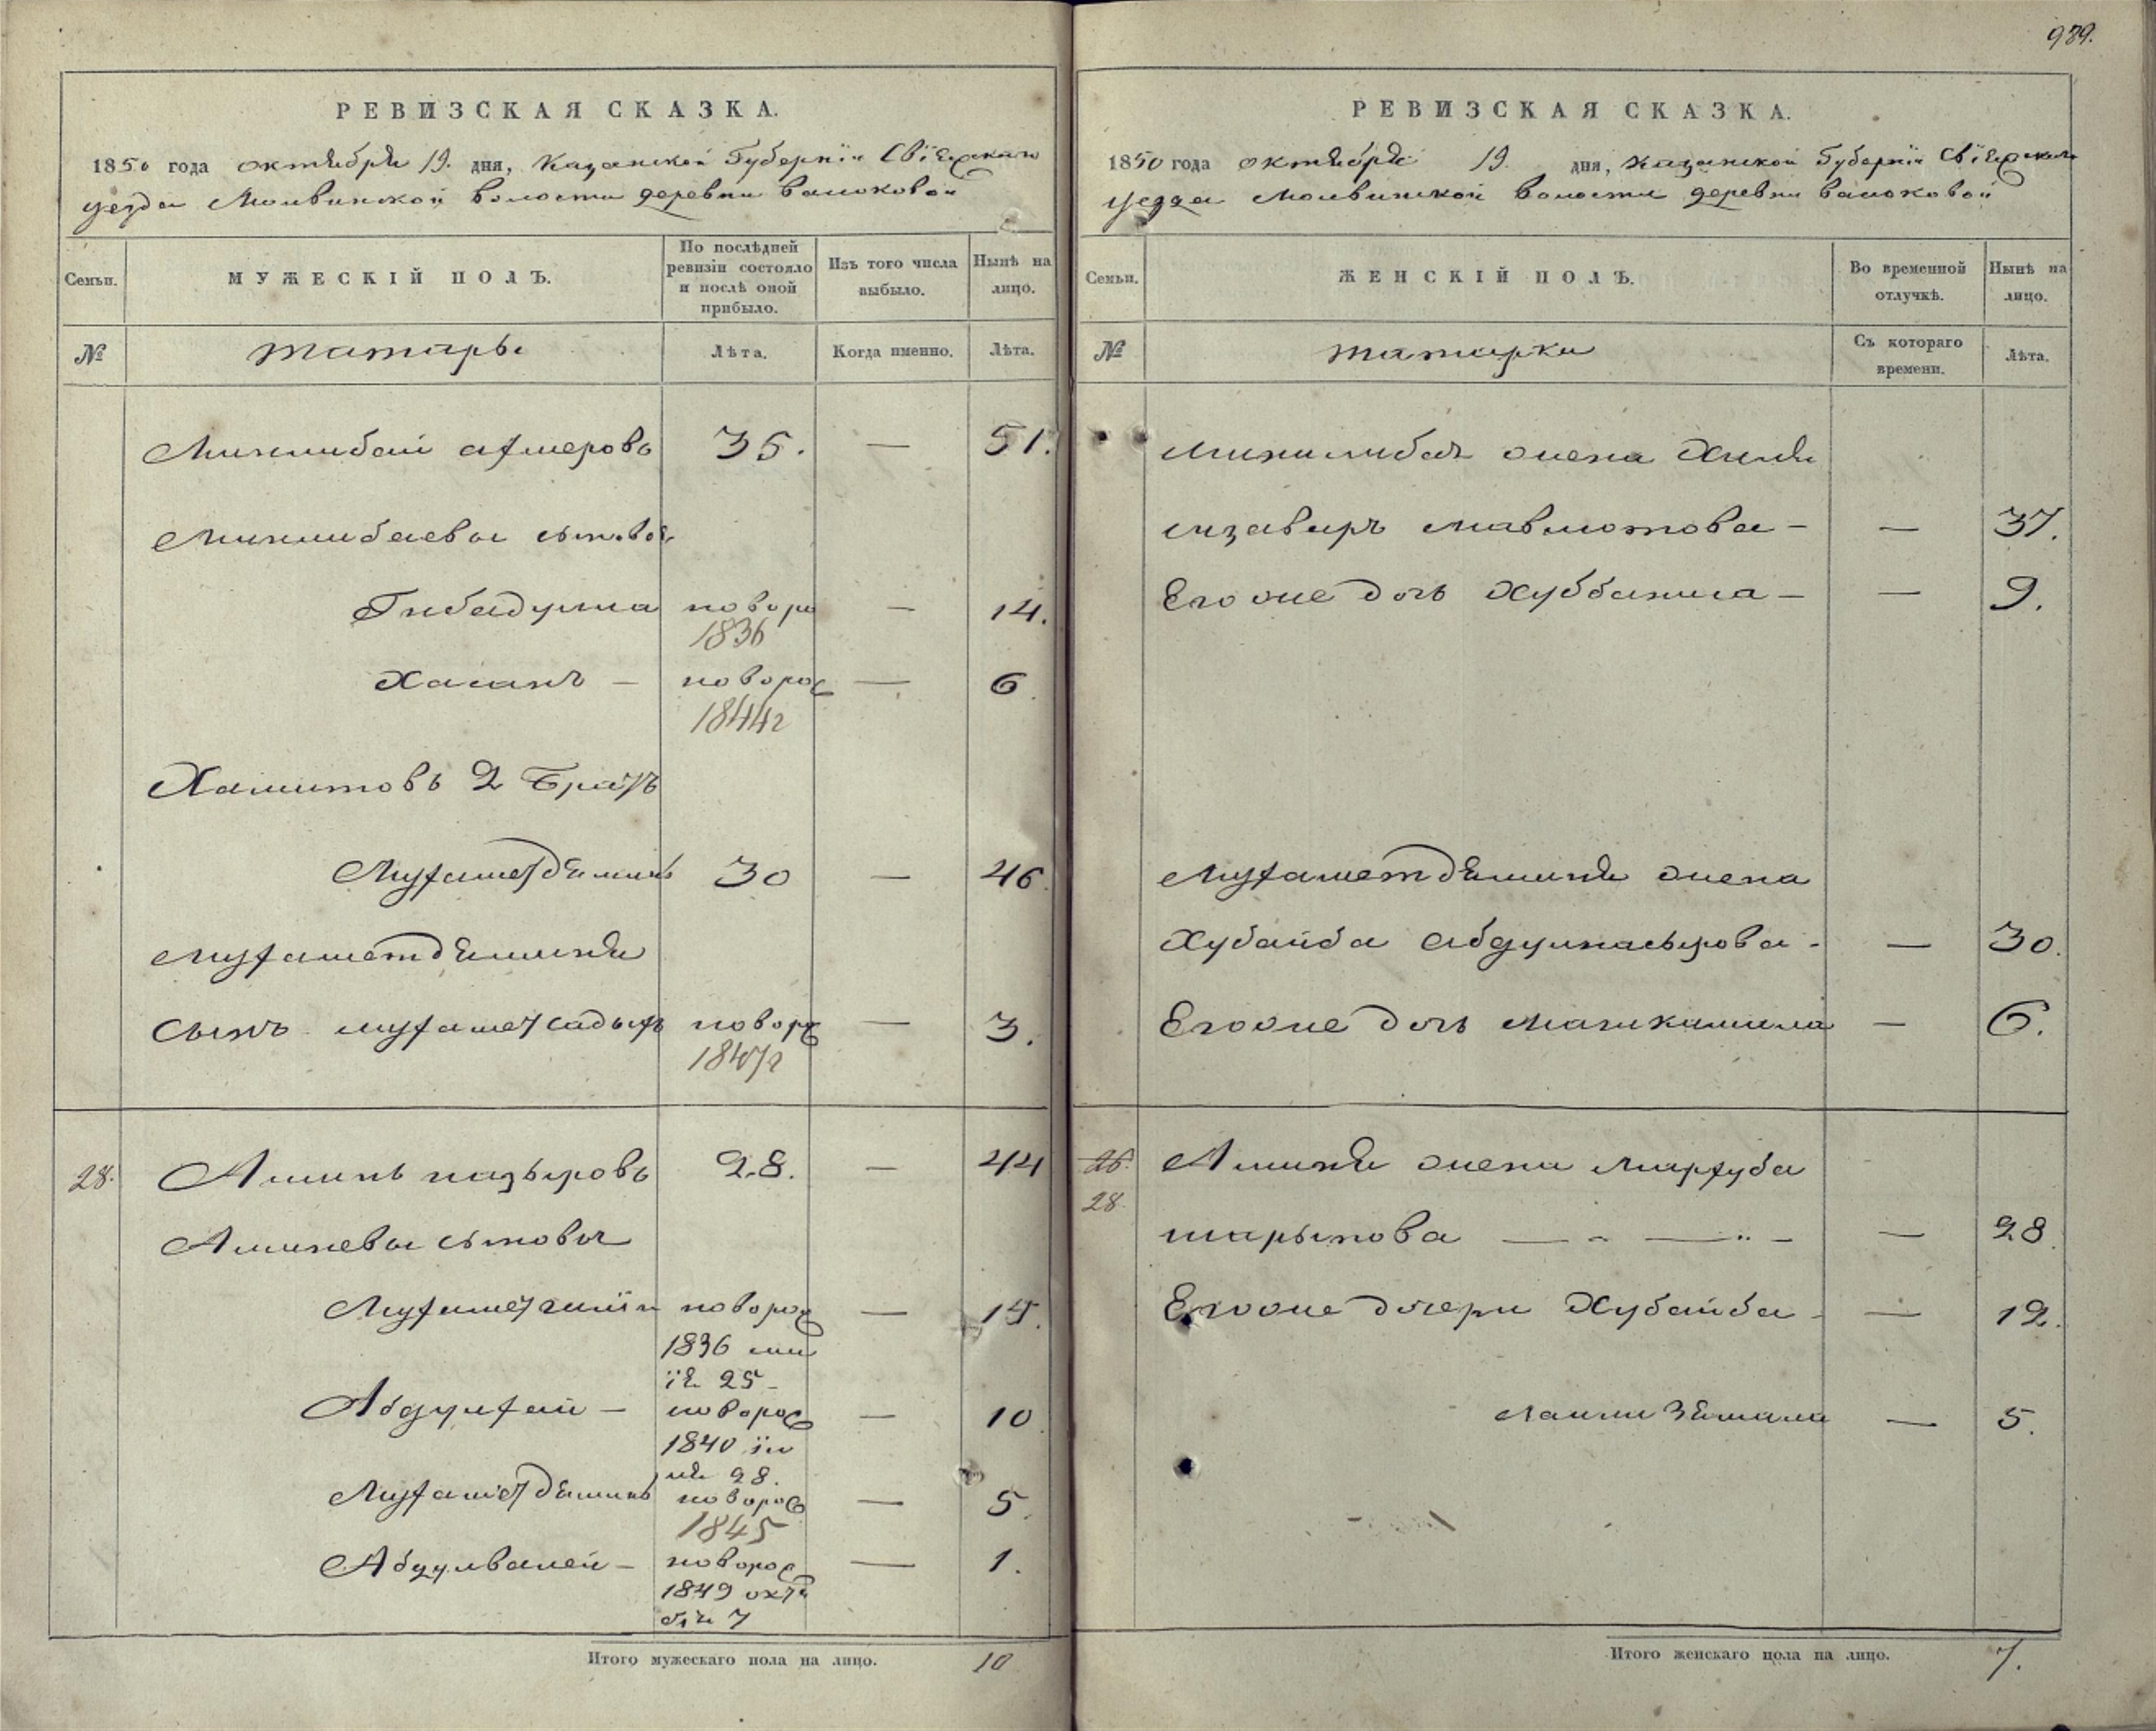 989.
РЕВИЗСКАЯ СКАЗКА.
1850 года октября 19. дня, Казанской Губернїи Свїяжскаго
уезда Молвинской волости деревни Валоковой
Семьи.
МУЖЕСКІЙ ПОЛЪ.
По послѣдней ревизіи состояло и послѣ оной прибыло.
Изъ того числа выбыло.
Нынѣ на лицо.
№
татары
Лѣта.
Когда именно.
Лѣта.
Миклибай Ахмеровъ 35. — 51.
Миклибаевы сыновья
Гибадулла новоро 1836 — 14.
Хасанъ — новорож 1844г — 6.
Хамитовъ 2 братъ
Мухаметдяминъ 30 — 46.
Мухаметдяминя
сынъ мухаметсадыкъ новорж 1847г — 3.
28. Аминь назыровъ 28. — 44
Аминевы сыновья
новорож — 14.
1836 ма
ія 25 –
Абдулхай — новорож — 10
1840 ію
ня 28.
Мухаметдяминъ новорож — 5.
1845
Абдулвалей — новорож — 1.
1849 октя
бря 7
Итого мужескаго пола на лицо. 10
РЕВИЗСКАЯ СКАЗКА.
1850 года октября 19. дня, Казанской Губернїи Свїяжскаго
уезда Молвинской волости деревни Валоковой
Семьи.
ЖЕНСКІЙ ПОЛЪ.
Во временной отлучкѣ.
Нынѣ на лицо.
№
татарки
Съ котораго времени.
Лѣта.
Миклибая жена
мавлютова — — 37.
Егоже дочь Хуббаниса — — 9.
Мухаметдяминя жена
Хубайба Абдулнасырова - — 30.
Егоже дочь — 6.
26. Аминя жена Мархуба
28.
шарыпова — " — " — — 28
Егоже дочери Хубайба - — 12.
— 5.
Итого женскаго пола на лицо. 7.